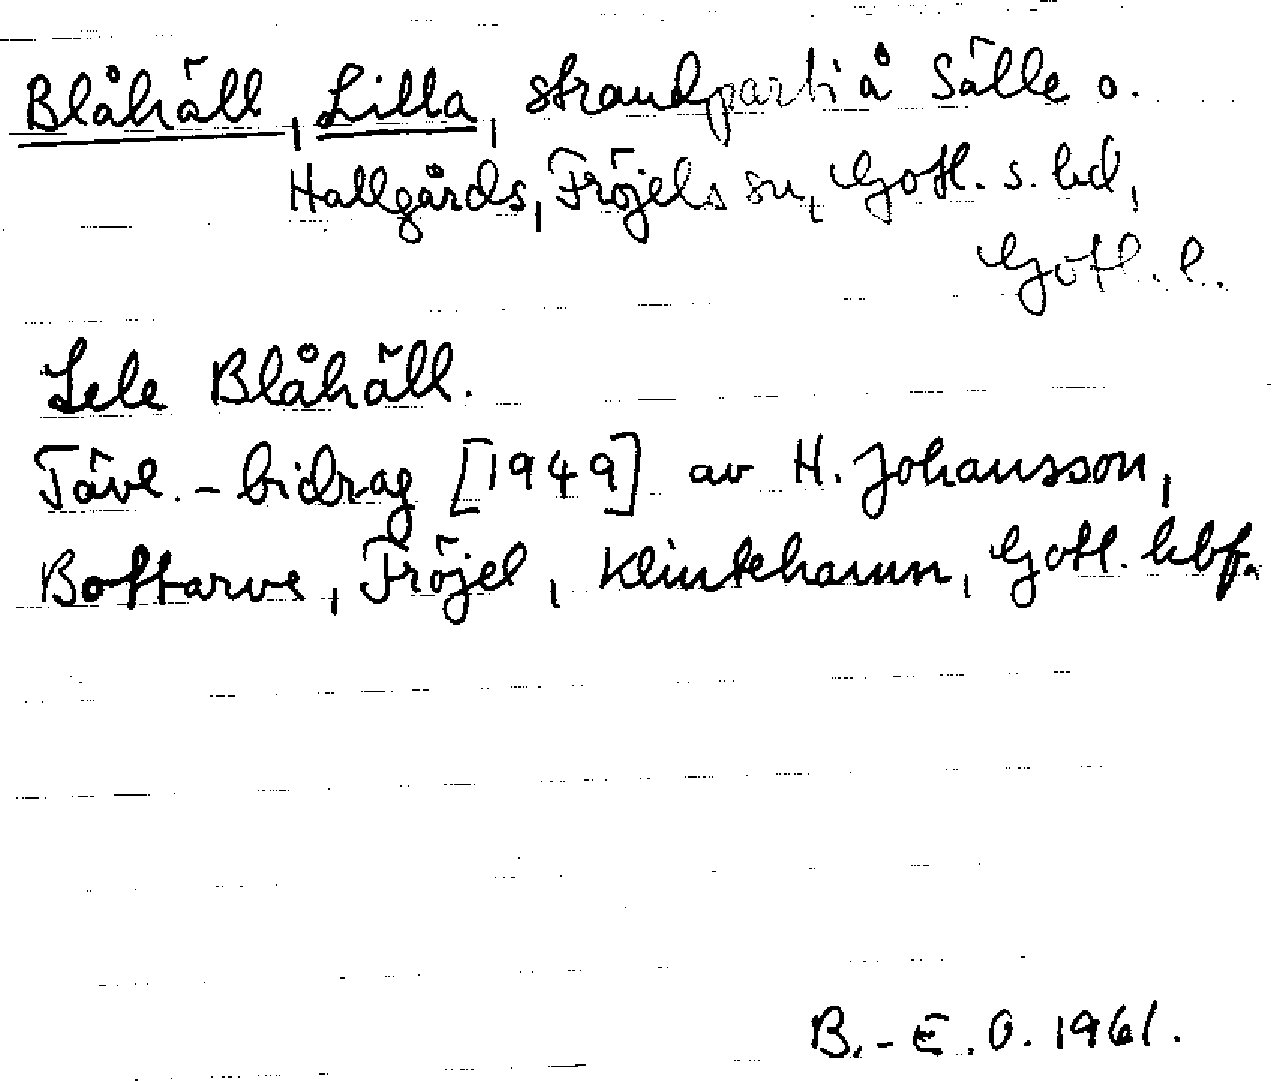 Blåhäll, Lilla, strandparti å Sälle o.
Hallgårds, Fröjels sn, Gotl. s. hd,
Gotl. l.
Lele Blåhäll.
Tävl.-bidrag [1949] av H. Johansson,
Bottarve, Fröjel, Klintehamn, Gotl. hbf.
B.-E. O. 1961.